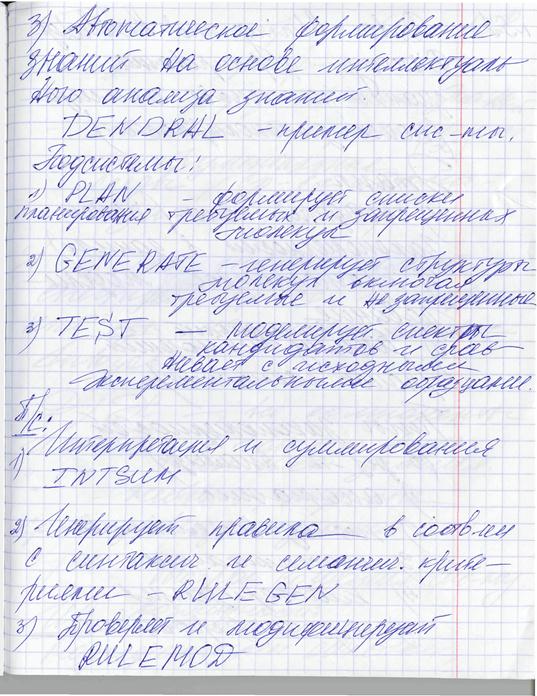 3) Автоматическое формирование
знаний на основе интеллектуаль
ного анализа знаний.
DENDRAL – пример сис-мы.
Подсистемы:
1) PLAN – формирует списки
планирования требуемых и запрещенных
молекул
2) GENERATE – генерирует структуры
молекул включая
требуемые и незапрещенные
3) TEST – моделирует спектры
кандидатов и срав
нивает с исходными
экспериментальными образцами.
П/с:
1) Интерпретация и суммирования
INTSUM
2) Генерирует правила в соотв-ии
с синтаксич. и семантич. крите-
риями – RULEGEN
3) Проверяет и модифицирует
RULEMOD